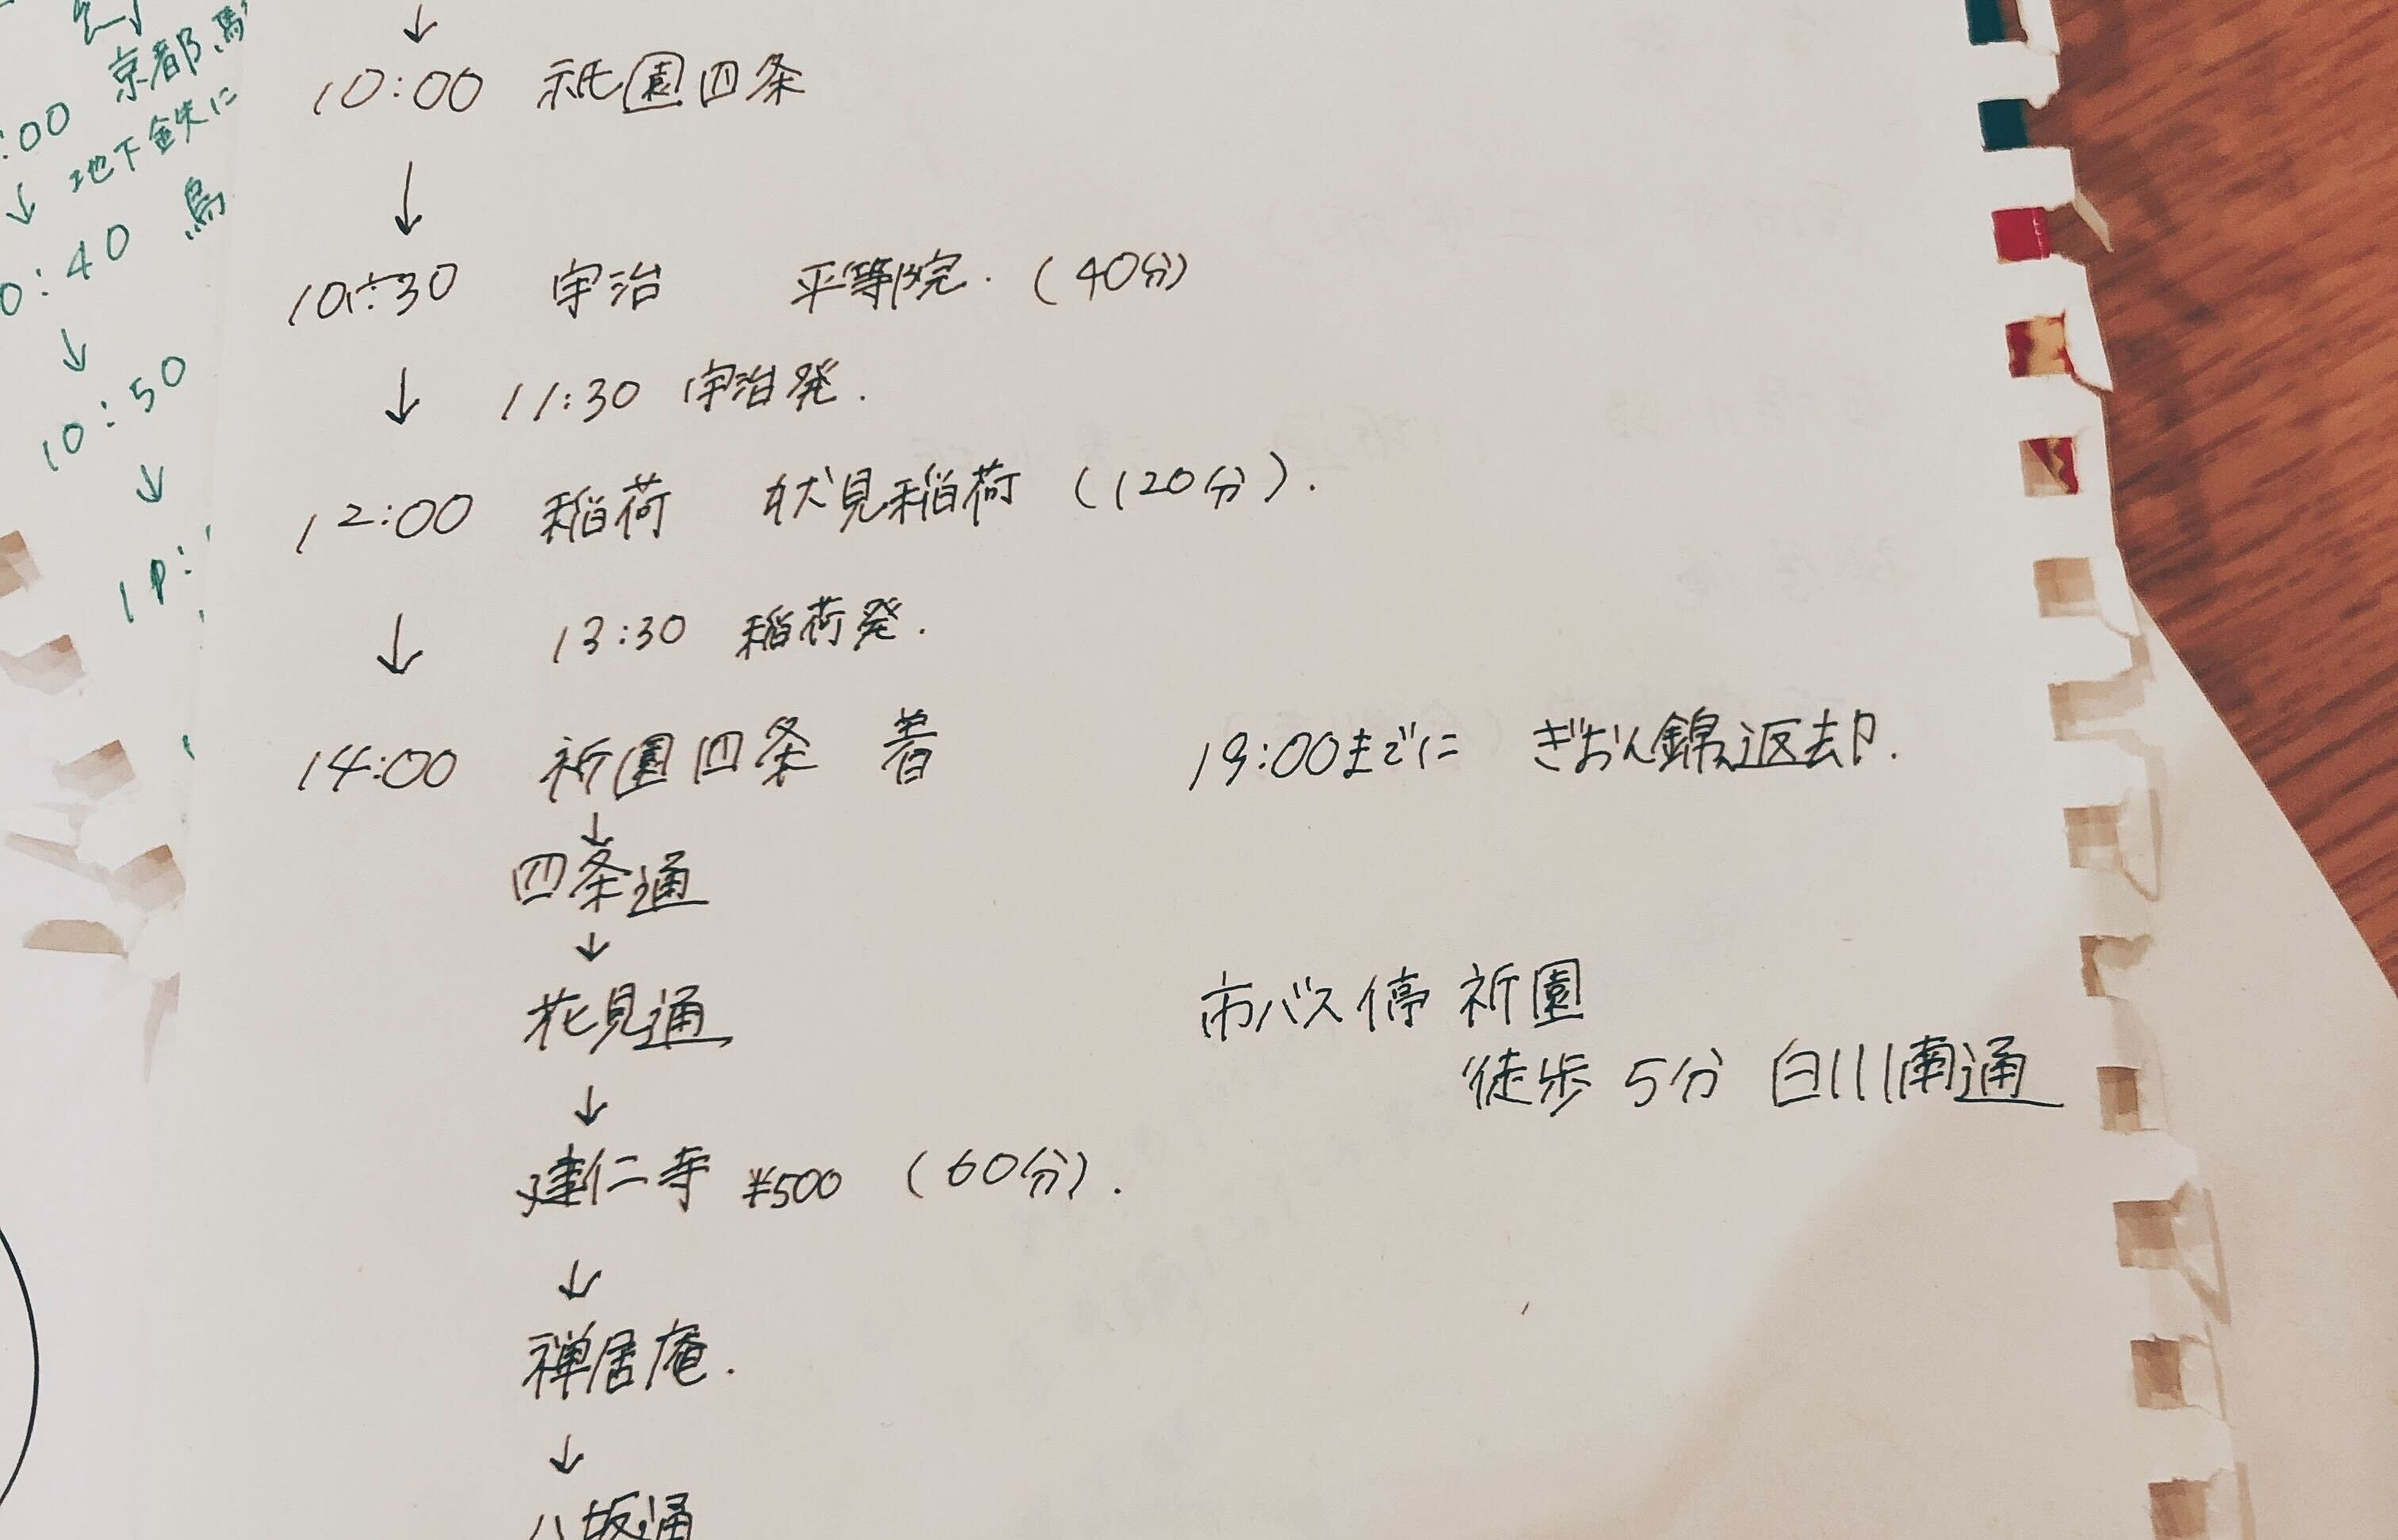 京都駅
:00
地下鉄に
↓
0:40 烏
↓
10:50
↓
↓
10:00 祇園四条
↓
10:30 宇治 平等院.(40分)
↓ 11:30 宇治発.
12:00 稲荷 伏見稲荷(120分).
↓ 13:30 稲荷発.
14:00 祈園四条 着
↓
四条通
↓
花見通
↓
建仁寺 ¥500 (60分).
↓
禅居庵.
↓
八坂通
19:00までに ぎおん錦返却.
市バス停 祈園
徒歩 5分 白川南通